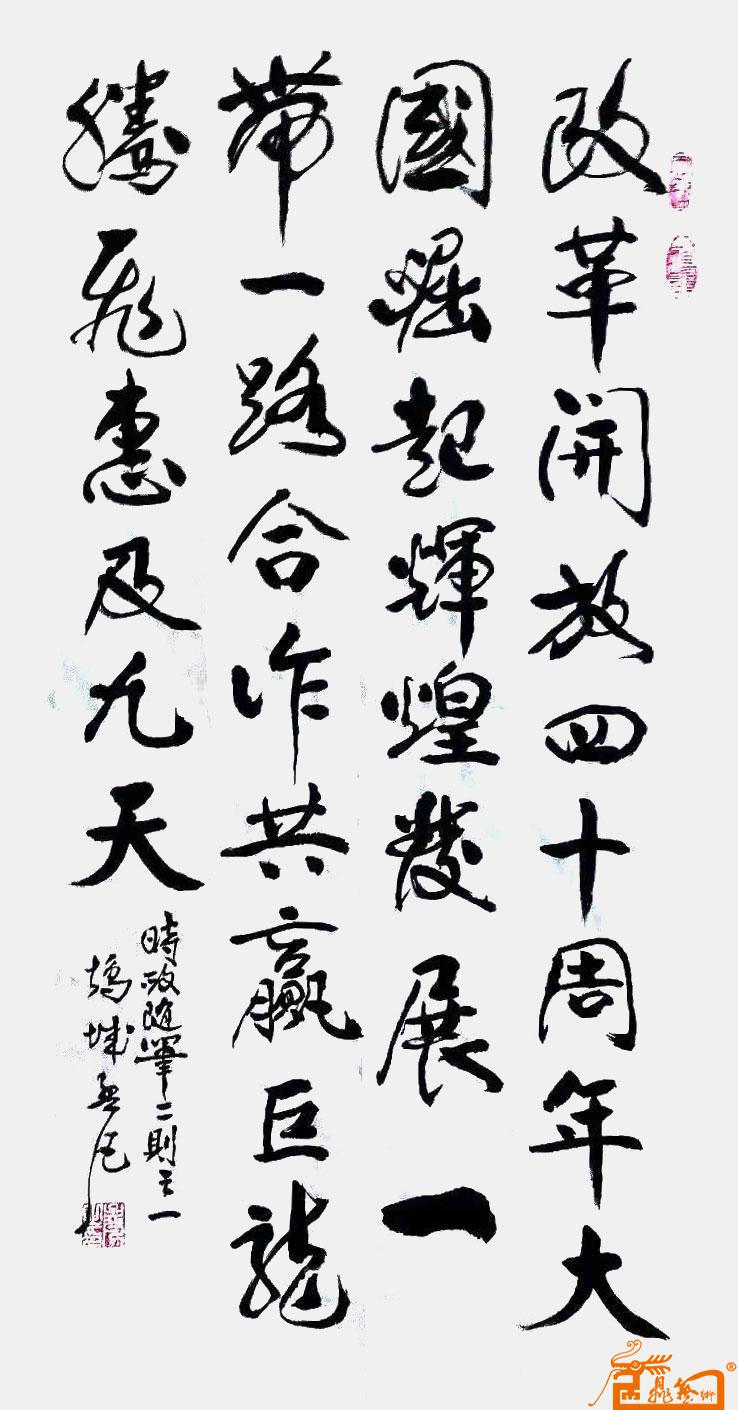 改革開放四十周年大
國崛起輝煌發展一
帶一路合作共贏巨龍
騰飛惠及九天
時政隨筆二則之一